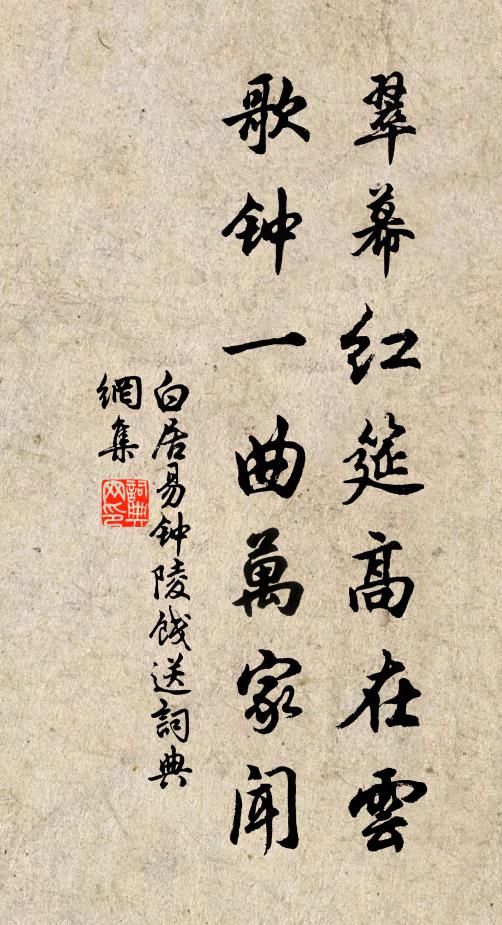 翠幕红筵高在雲
歌钟一曲萬家闻
白居易钟陵饯送詞典
網集
詞典
网印